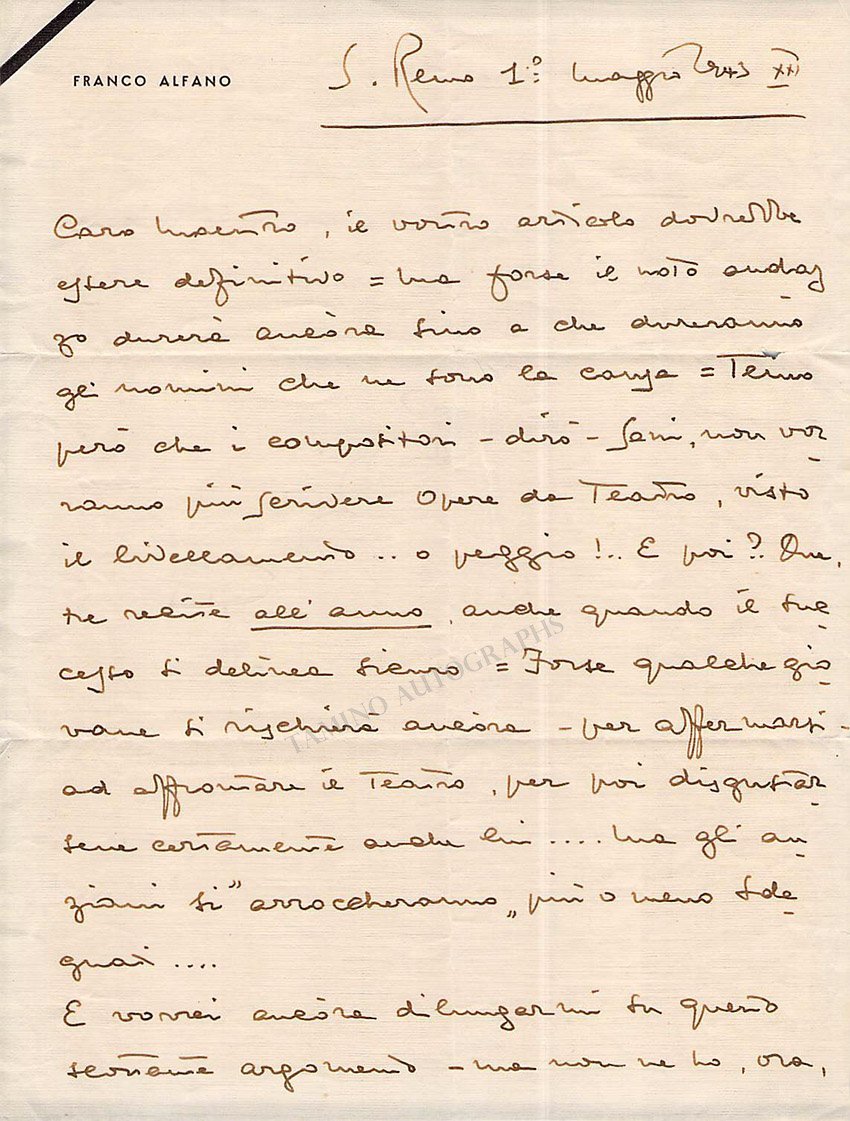 FRANCO ALFANO
S. Remo 1º Maggio 1943 XXI
Caro Maestro, il vostro articolo dovrebbe
essere definitivo = Ma forse il noto andaz
zo durerà ancòra sino a che dureranno
gli uomini che ne sono la causa = Temo
però che i compositori - dirò - sani, non vor
ranno più scrivere Opere da Teatro, visto
il livellamento .. o peggio!.. E poi? Due,
tre recite all'anno, anche quando il suc
cesso si delinea sicuro = Forse qualche gio
vane si rischierà ancòra - per affermarsi -
ad affrontare il Teatro, per poi disgustar
sene certamente anche lui .... Ma gli an
ziani si "arroccheranno" più o meno sde
gnati ....
E vorrei ancòra dilungarmi su questo
scottante argomento - ma non ne ho, ora,
TAMINO AUTOGRAPHS